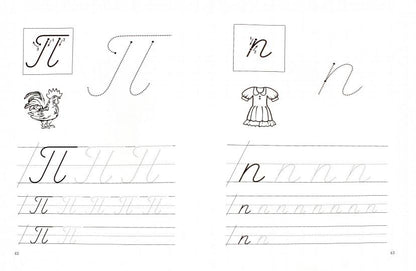 П П
П П П П
П П П П П
П П
42
п п
п п п п п
п п п п п п п п
п п
43